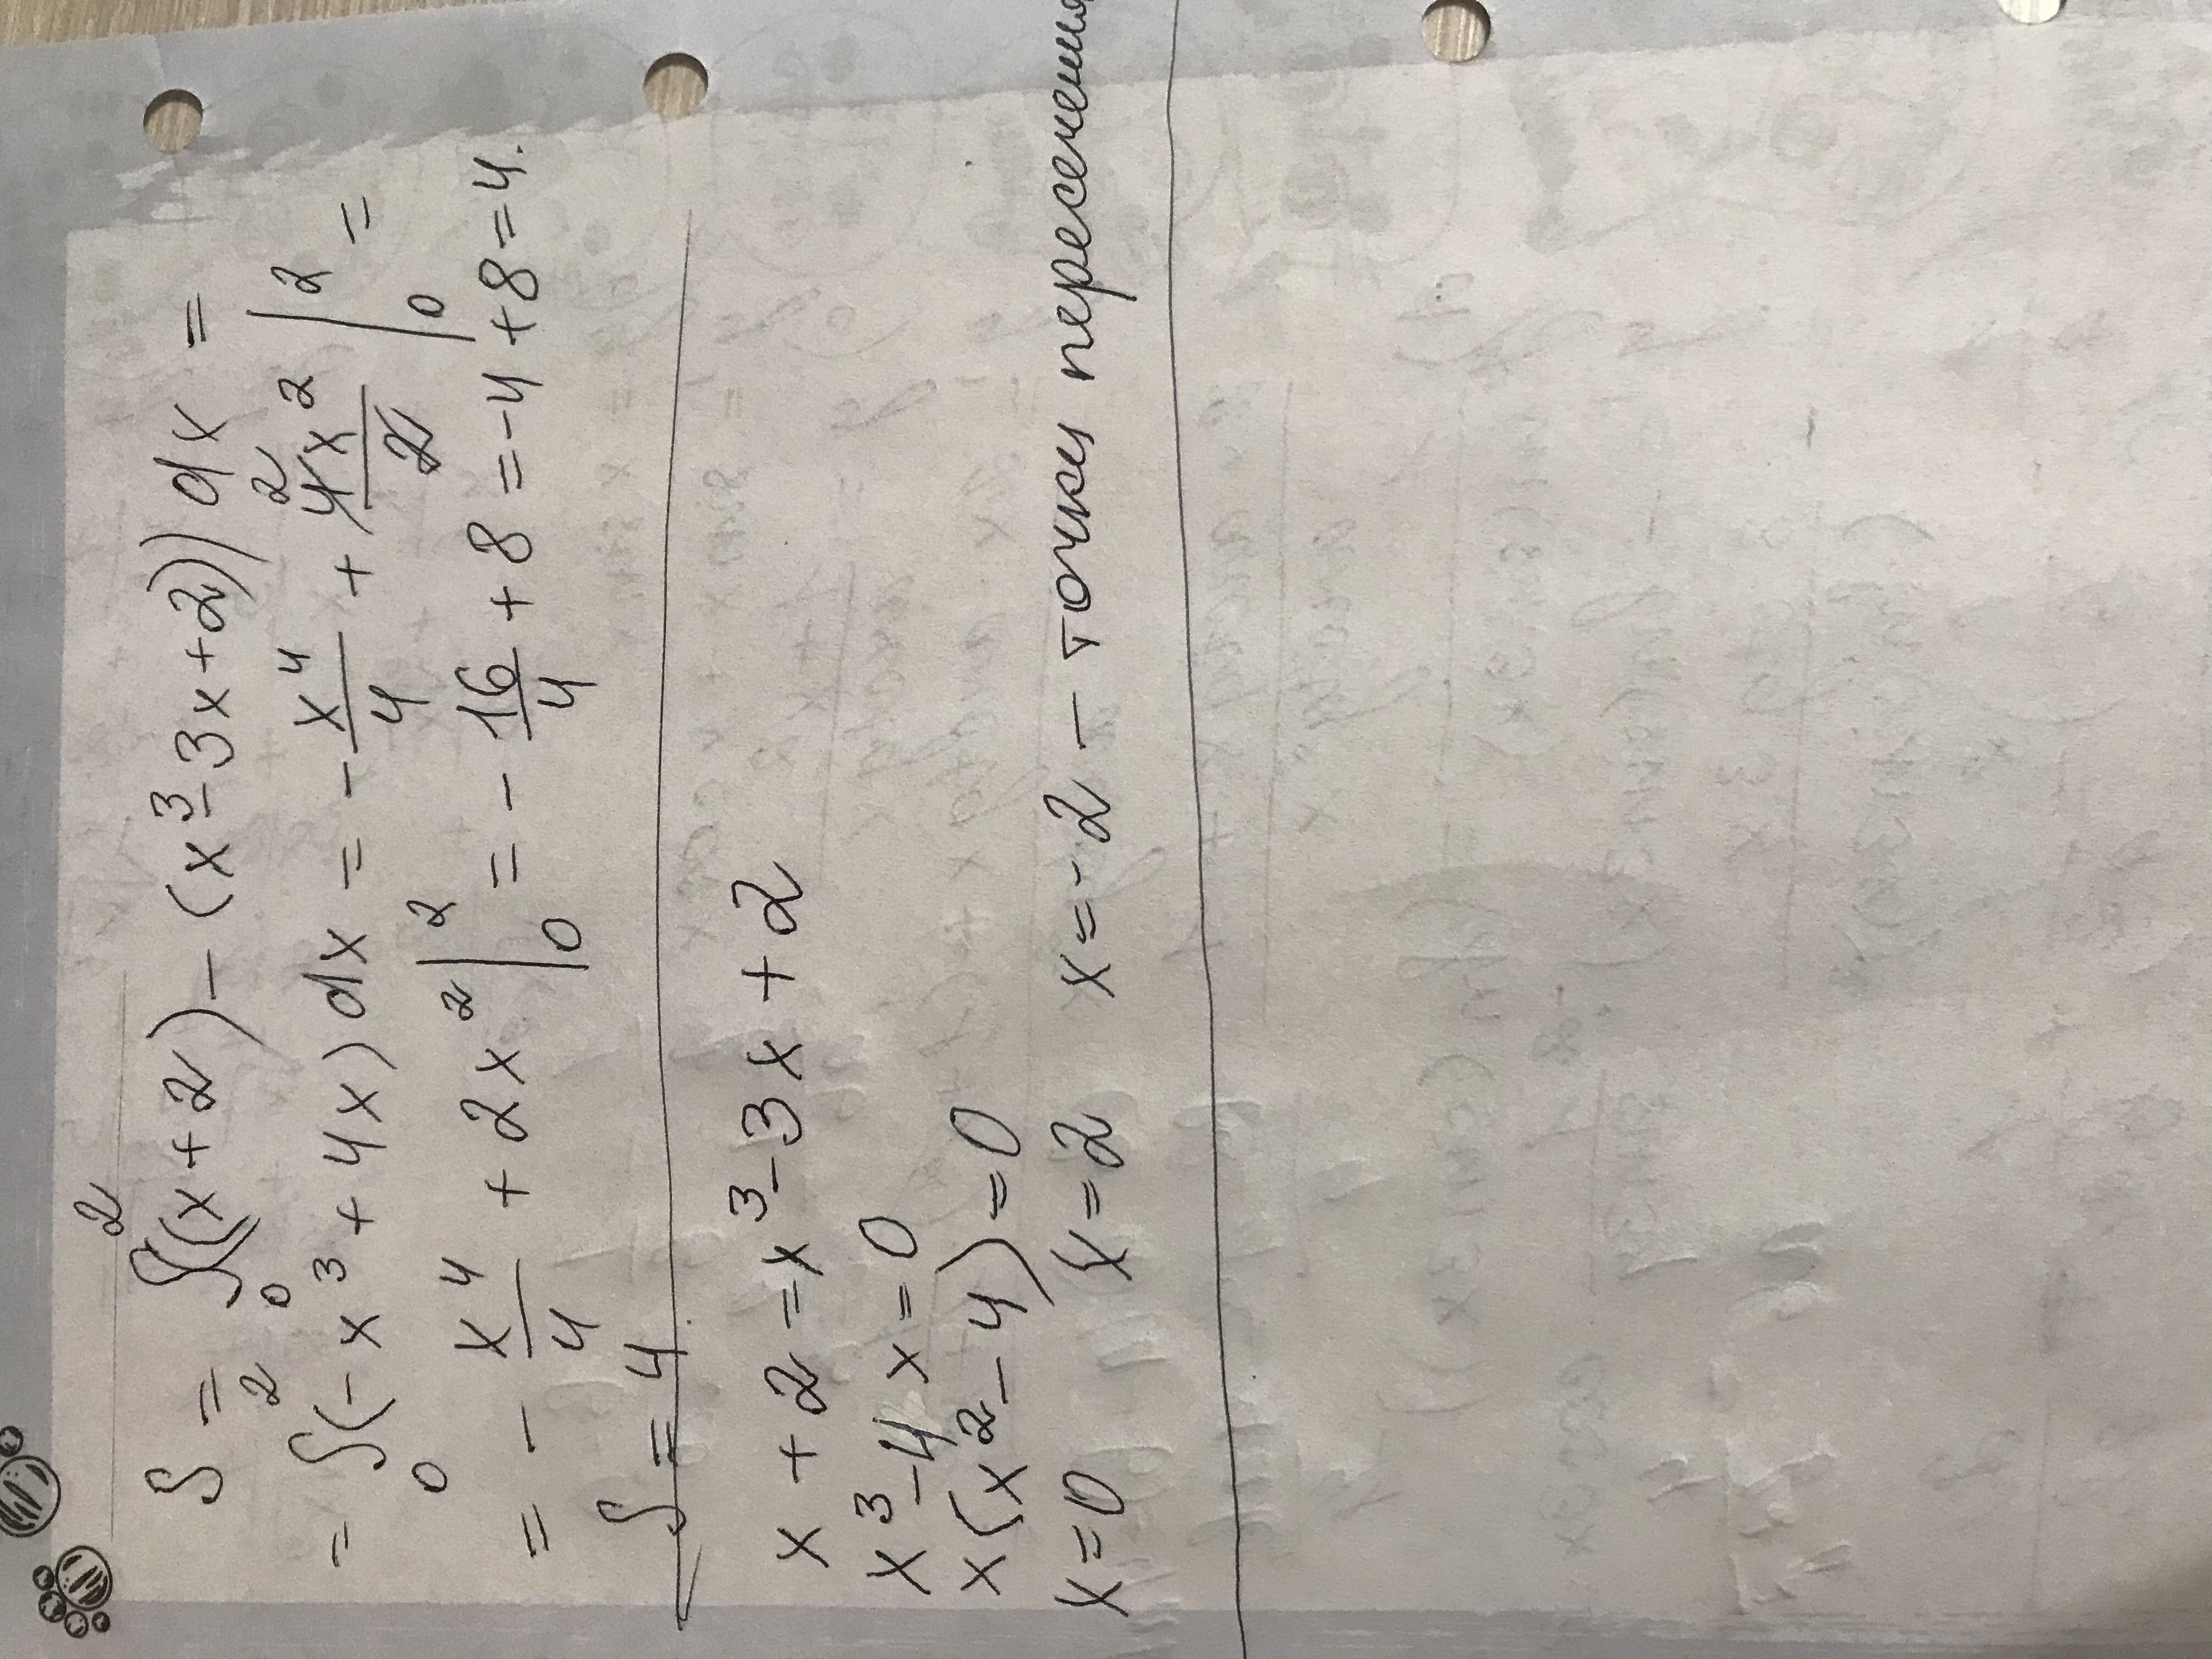 S = ∫₀² ((x+2) - (x³-3x+2)) dx =
= ∫₀² (-x³+4x) dx = -x⁴/4 + 4x²/2 |₀² =
= - x⁴/4 + 2x² |₀² = - 16/4 + 8 = -4 + 8 = 4.
S = 4.
x + 2 = x³ - 3x + 2
x³ - 4x = 0
x(x² - 4) = 0
x = 0 x = 2 x = -2 - точки пересечения